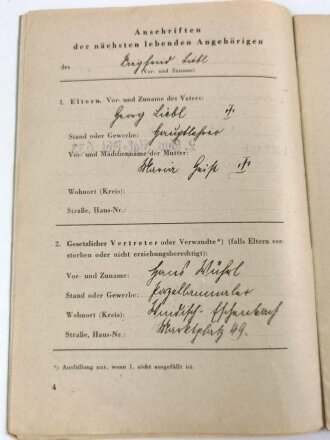 Anschriften
der nächsten lebenden Angehörigen
des Siegfried Liebl
(Vor- und Zuname)
1. Eltern. Vor- und Zuname des Vaters:
Georg Liebl
Stand oder Gewerbe: Hauptlehrer
Vor- und Mädchenname der Mutter:
Maria Geist
Wohnort (Kreis):
Straße, Haus-Nr.:
2. Gesetzlicher Vertreter oder Verwandte*) (falls Eltern ver-
storben oder nicht erziehungsberechtigt):
Vor- und Zuname: Hans
Stand oder Gewerbe: Porzellanmaler
Wohnort (Kreis): Windisch-Eschenbach
Straße, Haus-Nr.: Marktplatz 49.
*) Ausfüllung nur, wenn 1. nicht ausgefüllt ist.
4